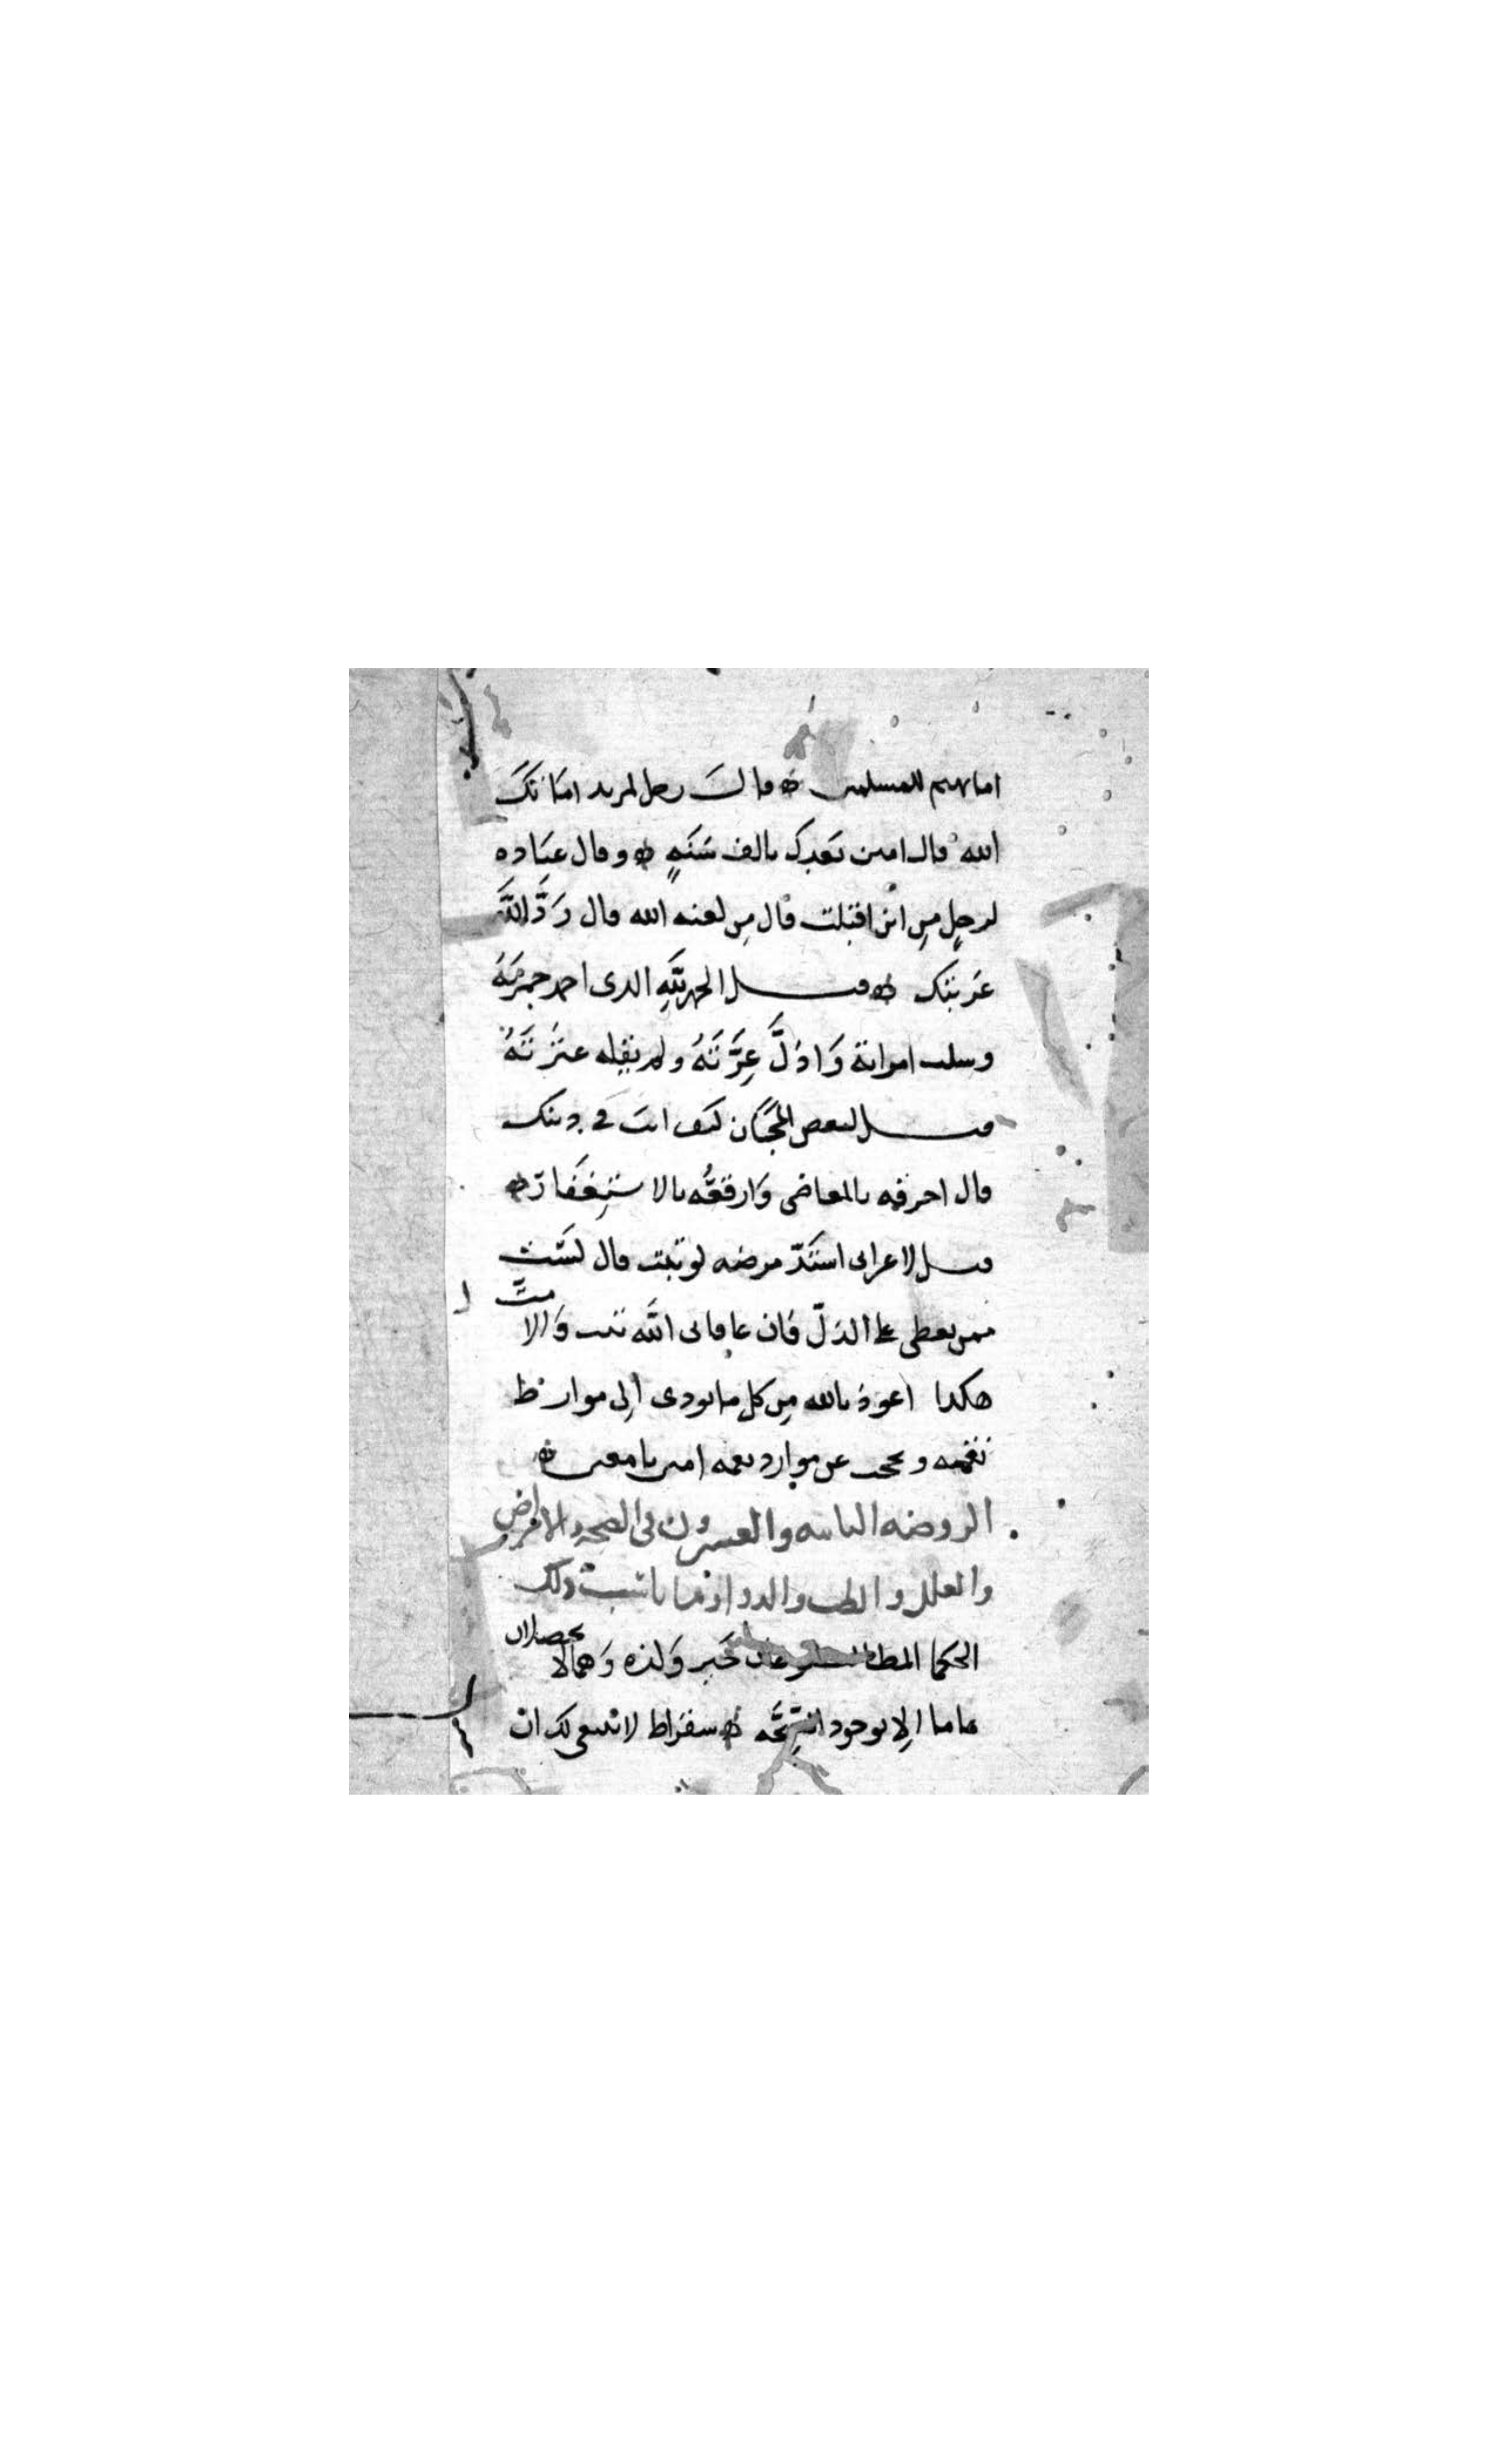 امانهم للمسلمين ه وقال رجل لمزيد اماتك
الله قال امين بعدك بالف سنةٍ ه وقال عباده
لرجلٍ مِن اين اقبلت قال مِن لعنه الله قال رَدَّ اللَّه
غربتك ه قيل الحمد لله الذى اخمد جمرته
وسلب امواله وَاذلَّ عِزَّتَهُ ولم يقله عثرته
قيل لبعض المُجَّان كيف انت فى دينك
قال اخرقه بالمعاصى وَارقعُه بالاستغفار ه
قيل لاعرابى اشتدّ مرضه لو تبت قال لست
ممن يعطى على الذلّ فان عافانى الله تبت وَالا متّ
هكذا اعوذ بالله مِن كل ما يودى اِلى موارد
نقمه و عن موارد نعمه امين يا معين ه
الروضه الثانيه والعشرون فى الصحه والامراض
والعلل والطب والدوا وما ناسب ذلك
الحكما خير وَلذه وَهما لا يحصلان
الا بوجود الصِّحَّه ه سقراط لا ينبغى لك ان